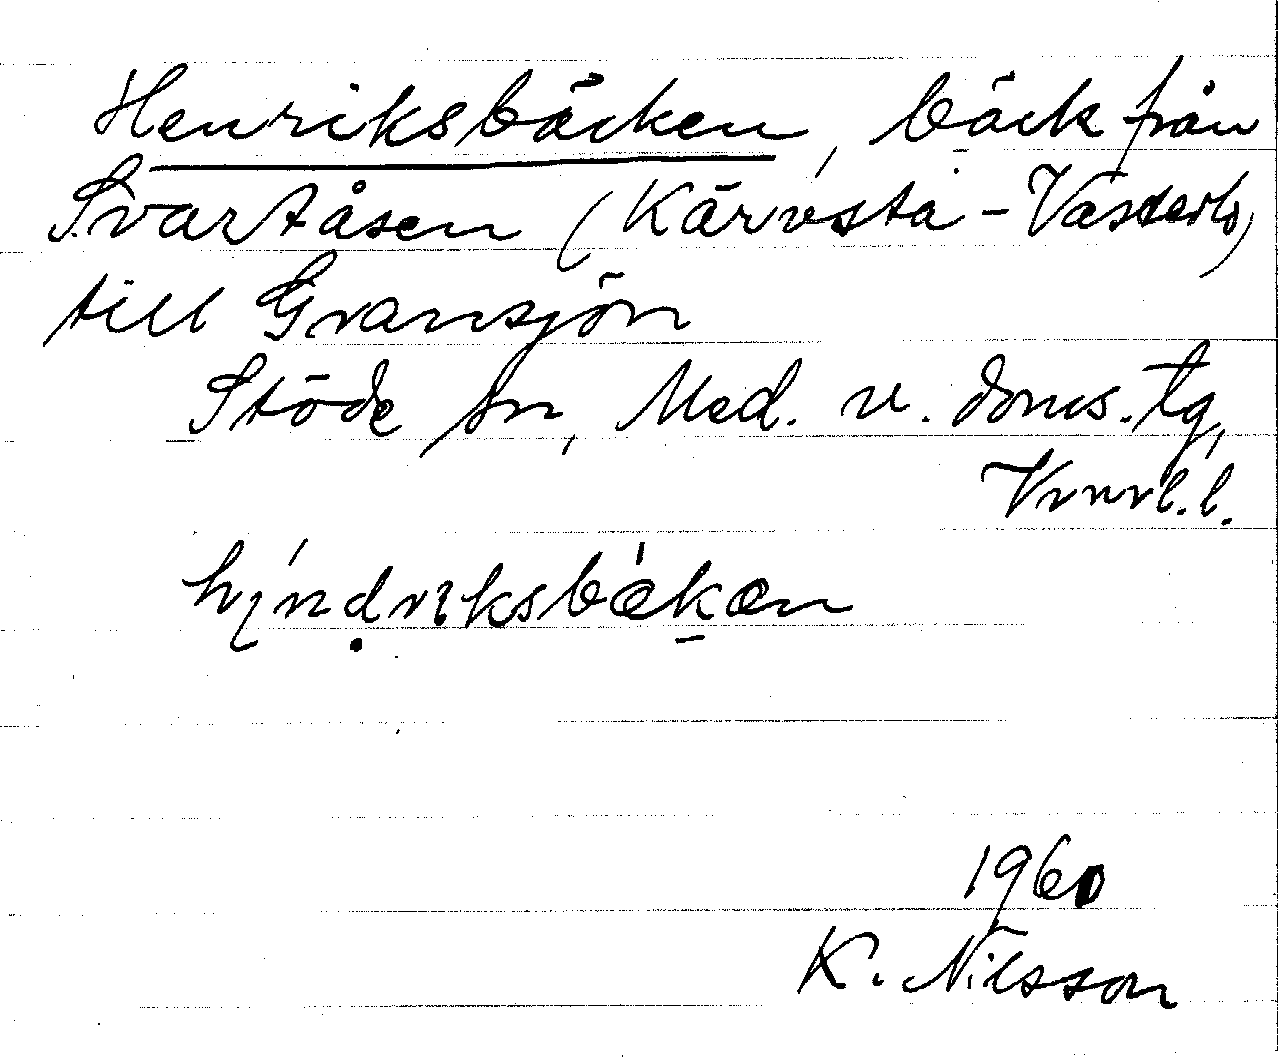 Henriksbäcken, bäck från
Svartåsen (Kärvsta - Västerlo)
till Gransjön
Stöde sn, Med. v. doms. tg,
Vrnrl. l.
híndriksbækæn
1960
K. Nilsson